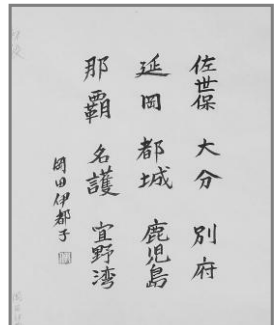 佐世保 大分 別府
延岡 都城 鹿児島
那覇 名護 宜野湾
岡田伊都子